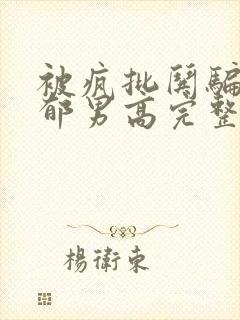 被疯批闋騙
郁男高完整
楊衛東